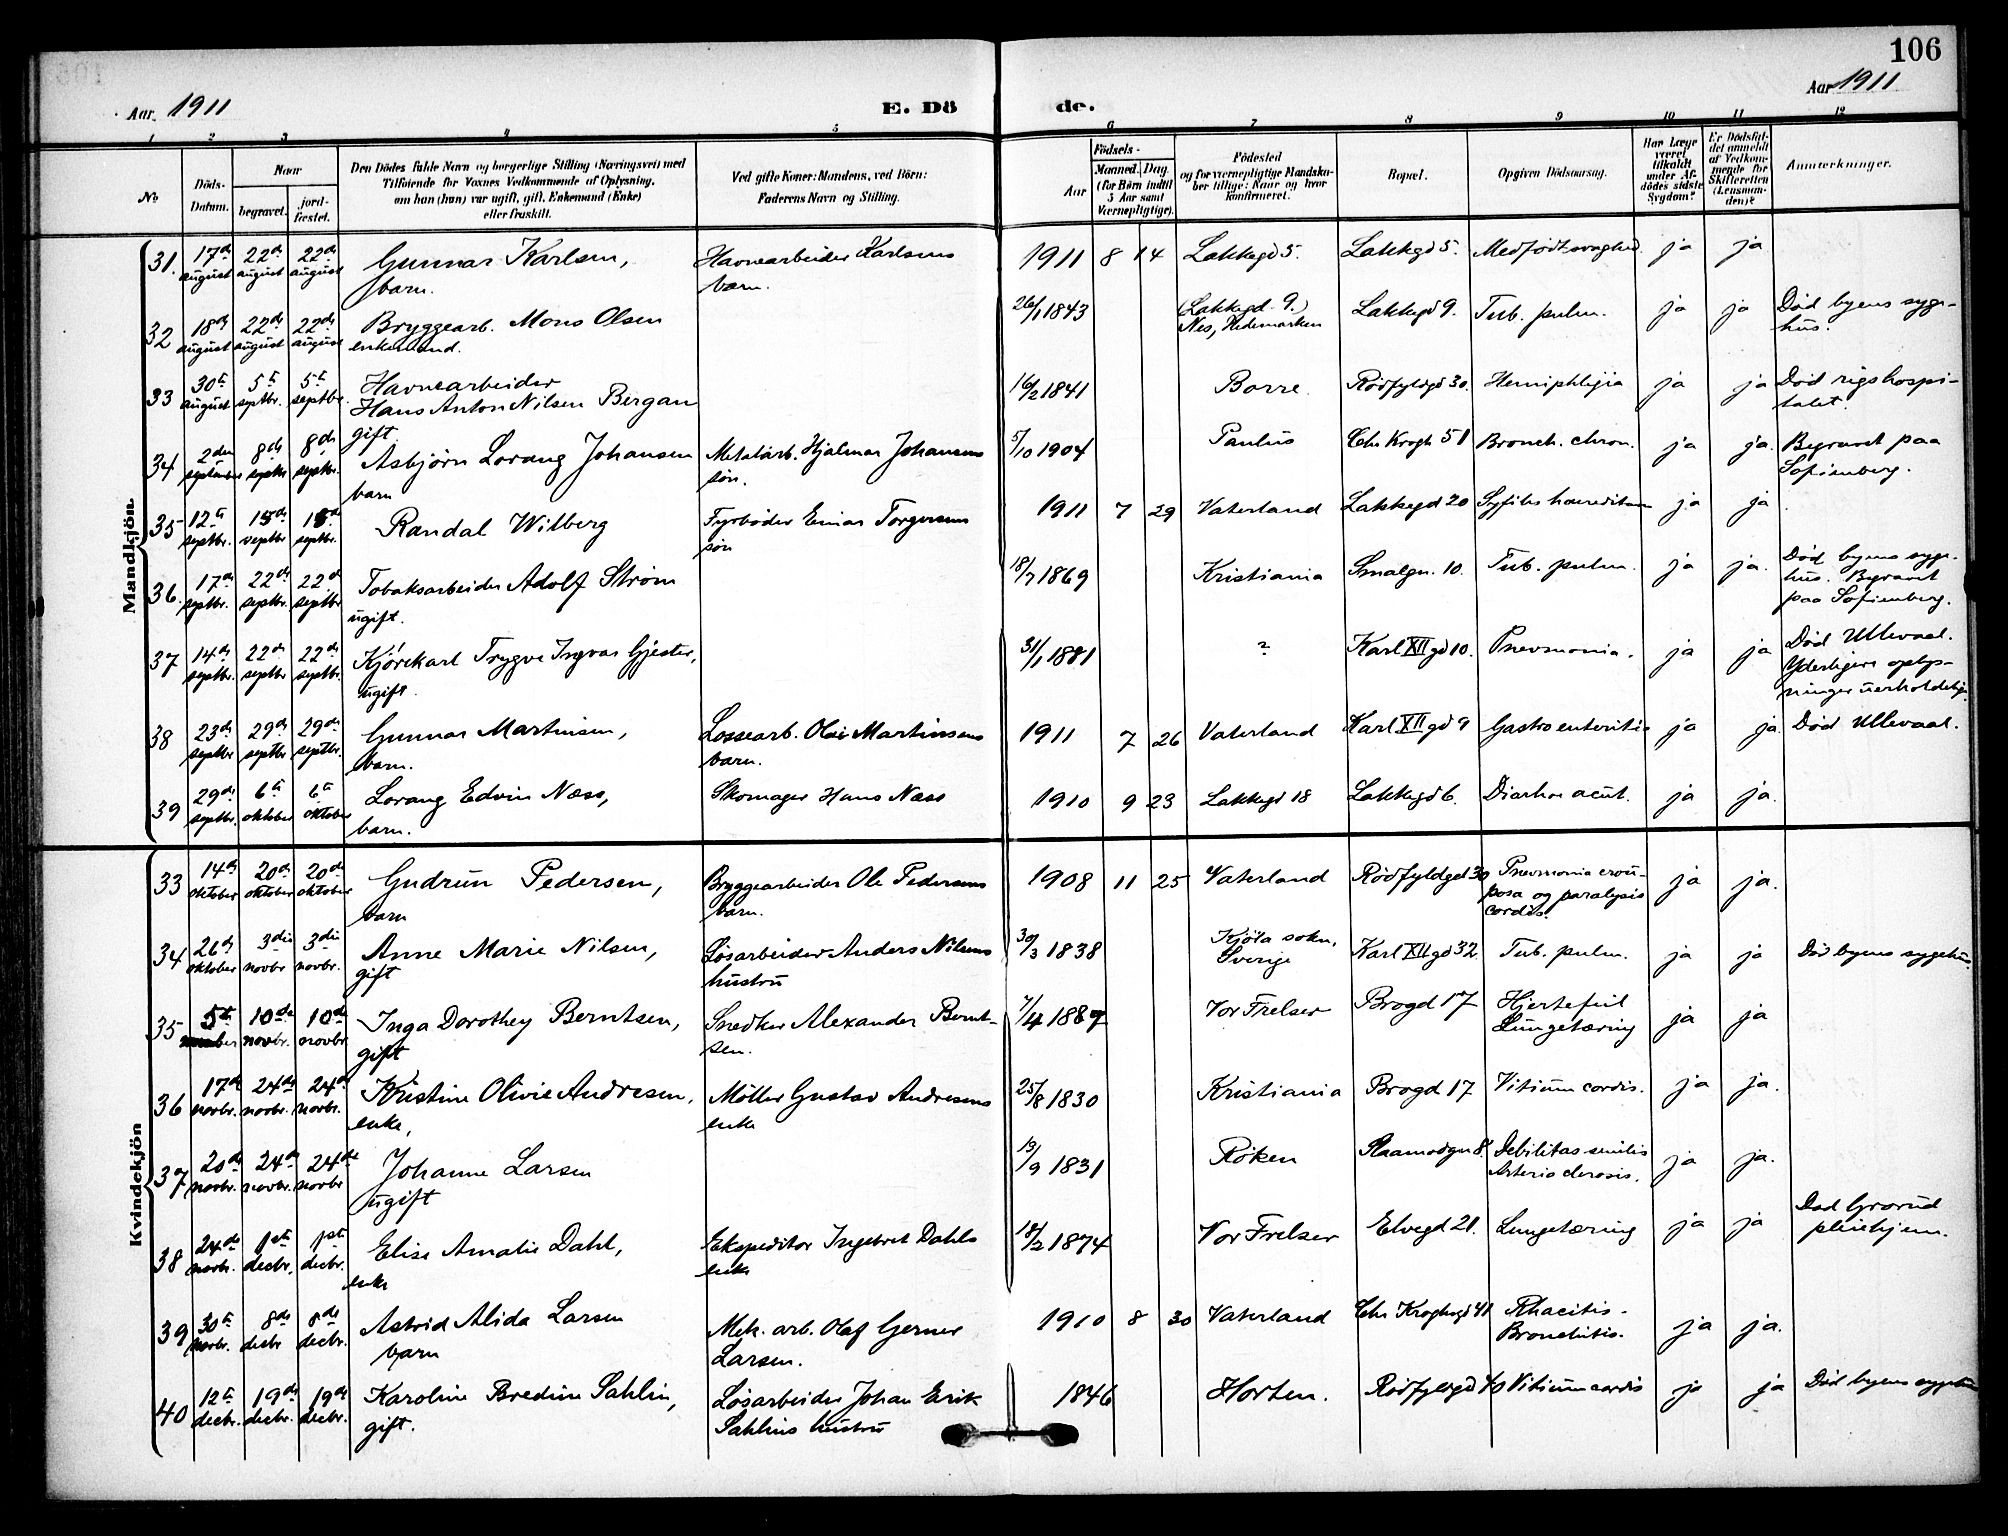 106
Aar 1911
E. Dö de.
Aar 1911
1 2 3 4 5 6 7 8 9 10 11 12
No
Döds-Datum.
Naar
begravet.
jord-fæstet.
Den Dödes fulde Navn og borgerlige Stilling (Næringsvei) med
Tilföiende for Voxnes Vedkommende af Oplysning,
om han (hun) var ugift, gift, Enkemand (Enke)
eller fraskilt.
Ved gifte Koner: Mandens, ved Börn:
Faderens Navn og Stilling.
Födsels-
Aar
Maaned. Dag.
(for Börn indtil
5 Aar samt
Værnepligtige).
Födested
og for værnepligtige Mandska-
ber tillige: Naar og hvor
konfirmeret.
Bopæl.
Opgiven Dödsaarsag.
Har Læge
været
tilkaldt
under Af-
dödes sidste
Sygdom?
Er Dödsfal-
det anmeldt
af Vedkom-
mende for
Skifteretten
(Lensman-
den)?
Anmærkninger.
Mandkjön.
31. 17de august 22de august 22de august Gunnar Karlsen, barn. Havnearbeider Karlsens barn. 1911 8 14 Lakkegd 5. Lakkegd 5. Medfødt svaghed. ja ja
32 18de august 22de august 22de august Bryggearb. Mons Olsen enkemand. 26/1 1843 (Lakkegd. 9.) Nes, Hedemarken Lakkegd 9. Tub. pulm. ja ja Død byens syge-hus.
33 30te august 5te septbr. 5te septbr. Havnearbeider Hans Anton Nilsen Bergan gift 16/2 1841 Borre. Rødfyldgd 30. Hemiphlegia ja ja Død rigshospi-talet.
34 2den september 8de septbr 8de septbr. Asbjørn Lorang Johansen barn Metalarb. Hjalmar Johansens søn. 5/10 1904 Paulus Chr Krogh 51 Bronch. chron. ja ja. Begravet paa Sofienberg.
35 12te septbr. 15de septbr 15de septbr. Randal Wilberg Fyrbøder Einar Torgersens søn 1911 7 29 Vaterland Lakkegd 20 Syfilis hæreditær ja ja
36. 17de septbr. 22de septbr. 22de septbr. Tobaksarbeider Adolf Strøm ugift. 18/7 1869 Kristiania Smalgn. 10. Tub. pulm. ja ja. Død byens syge-hus. Begravet paa Sofienberg.
37 14de septbr. 22de septbr 22de septbr. Kjørekarl Trygve Ingvar Gjester, ugift. 31/1 1881 ? Karl XII gd 10. Pnevmonia. ja ja Død Ullevaal. Yderligere oplys-ninger uerholdelige
38 23de septbr 29de septbr 29de septbr. Gunnar Martinsen, barn. Lossearb. Olai Martinsens barn. 1911 7 26 Vaterland Karl XII gd 9 Gastroenteritis ja ja. Død Ullevaal.
39 29de septbr. 6te oktober 6te oktober Lorang Edvin Næss, barn. Skomager Hans Næss 1910 9 23 Lakkegd 18 Lakkegd 6. Diarhoe acut. ja ja.
Kvindekjön
33 14de oktober 20de oktober 20de oktober Gudrun Pedersen, barn Bryggearbeider Ole Pedersens barn. 1908 11 25 Vaterland Rødfyldgd 30 Pnevmonia crou-posa og paralysis cordis. ja ja.
34 26de oktober 3die novbr 3die novbr. Anne Marie Nilsen, gift Løsarbeider Anders Nilsens hustru 30/3 1838 Kjøla sokn, Sverige Karl XII gd 32. Tub. pulm. ja ja Død byens sygehus.
35 5te 10de novbr. 10de novbr Inga Dorothey Berntsen, gift Snedker Alexander Bernt-sen. 7/4 1889 Vor Frelser Brogd 17 Hjertefeil Lungetæring ja ja
36 17de novbr. 24de novbr. 24de novbr. Kristine Olivie Andresen, enke, Møller Gustav Andresens enke 25/8 1830 Kristiania Brogd 17 Vitium cordis. ja ja.
37 20de novbr. 24de novbr. 24de novbr Johanne Larsen ugift 13/9 1831 Røken Plaamodgn 8. Debilitas senilis Arterio clerosis. ja ja.
38 24de novbr. 1ste decbr. 1ste decbr. Elise Amalie Dahl, enke Ekspeditør Ingebret Dahls enke 18/2 1874 Vor Frelser Elvegd 21. Lungetæring ja ja Død Grorud pleiehjem.
39 30te novbr. 8de decbr 8de decbr. Astrid Alida Larsen barn Mek. arb. Olaf Gerner Larsen. 1910 8 30 Vaterland Chr Kroghsgd 41 Rhacitis. Bronchitis. ja ja.
40 12te decbr. 19de decbr. 19de decbr. Karoline Bredine Sahlin, gift. Løsarbeider Johan Erik Sahlins hustru 1846 Horten. Rødfyldgd 40 Vitium cordis ja ja Død byens sygehus